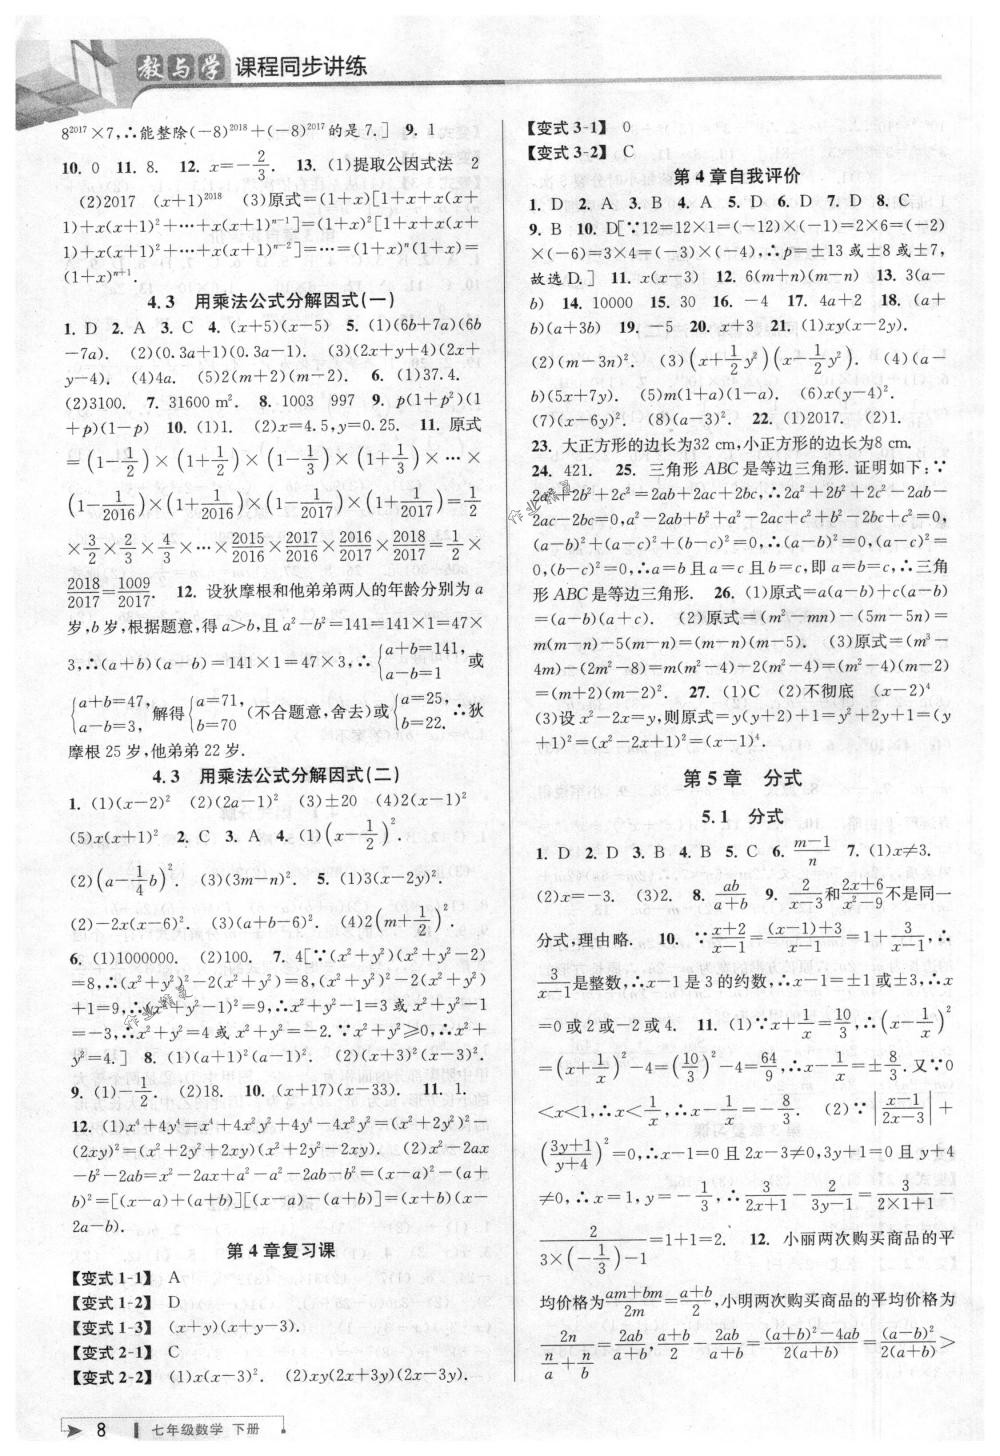 教与学 课程同步讲练
8²⁰¹⁷×7,∴能整除(－8)²⁰¹⁸+(－8)²⁰¹⁷的是7.] 9. 1
10. 0 11. 8. 12. x=－2/3. 13. (1)提取公因式法 2
(2)2017 (x+1)²⁰¹⁸ (3)原式=(1+x)[1+x+x(x+
1)+x(x+1)²+…+x(x+1)ⁿ⁻¹]=(1+x)²[1+x+x(x+
1)+x(x+1)²+…+x(x+1)ⁿ⁻²]=…=(1+x)ⁿ(1+x)=
(1+x)ⁿ⁺¹.
4.3 用乘法公式分解因式(一)
1. D 2. A 3. C 4. (x+5)(x－5) 5. (1)(6b+7a)(6b
－7a). (2)(0.3a+1)(0.3a－1). (3)(2x+y+4)(2x+
y－4). (4)4a. (5)2(m+2)(m－2). 6. (1)37.4.
(2)3100. 7. 31600 m². 8. 1003 997 9. p(1+p²)(1
+p)(1－p) 10. (1)1. (2)x=4.5,y=0.25. 11. 原式
=(1－1/2)×(1+1/2)×(1－1/3)×(1+1/3)×…×
(1－1/2016)×(1+1/2016)×(1－1/2017)×(1+1/2017)=1/2
×3/2×2/3×4/3×…×2015/2016×2017/2016×2016/2017×2018/2017=1/2×
2018/2017=1009/2017. 12. 设狄摩根和他弟弟两人的年龄分别为a
岁,b岁,根据题意,得a>b,且a²－b²=141=141×1=47×
3,∴(a+b)(a－b)=141×1=47×3,∴{a+b=141, a－b=1 或
{a+b=47, a－b=3, 解得{a=71, b=70 (不合题意,舍去)或{a=25, b=22. ∴狄
摩根25岁,他弟弟22岁.
4.3 用乘法公式分解因式(二)
1. (1)(x－2)² (2)(2a－1)² (3)±20 (4)2(x－1)²
(5)x(x+1)² 2. C 3. A 4. (1)(x－1/2)².
(2)(a－1/4b)². (3)(3m－n)². 5. (1)3(x－2y)².
(2)－2x(x－6)². (3)(a+b－6)². (4)2(m+1/2)².
6. (1)1000000. (2)100. 7. 4[∵(x²+y²)(x²+y²－2)
=8,∴(x²+y²)²－2(x²+y²)=8,(x²+y²)²－2(x²+y²)
+1=9,∴(x²+y²－1)²=9,∴x²+y²－1=3或x²+y²－1
=－3,∴x²+y²=4或x²+y²=－2.∵x²+y²≥0,∴x²+
y²=4.] 8. (1)(a+1)²(a－1)². (2)(x+3)²(x－3)².
9. (1)－1/2. (2)18. 10. (x+17)(x－33). 11. 1.
12. (1)x⁴+4y⁴=x⁴+4x²y²+4y⁴－4x²y²=(x²+2y²)²－
(2xy)²=(x²+2y²+2xy)(x²+2y²－2xy). (2)x²－2ax
－b²－2ab=x²－2ax+a²－a²－2ab－b²=(x－a)²－(a+
b)²=[(x－a)+(a+b)][(x－a)－(a+b)]=(x+b)(x－
2a－b).
第4章复习课
【变式1-1】 A
【变式1-2】 D
【变式1-3】 (x+y)(x+y－3).
【变式2-1】 C
【变式2-2】 (1)x(x－3)². (2)xy(2x+3y)(2x－3y).
【变式3-1】 0
【变式3-2】 C
第4章自我评价
1. D 2. A 3. B 4. A 5. D 6. D 7. D 8. C
9. B 10. D[∵12=12×1=(－12)×(－1)=2×6=(－2)
×(－6)=3×4=(－3)×(－4),∴p=±13或±8或±7,
故选D.] 11. x(x－3) 12. 6(m+n)(m－n) 13. 3(a－
b) 14. 10000 15. 30 16. －4 17. 4a+2 18. (a+
b)(a+3b) 19. －5 20. x+3 21. (1)xy(x－2y).
(2)(m－3n)². (3)(x+1/2y²)(x－1/2y²). (4)(a－
b)(5x+7y). (5)m(1+a)(1－a). (6)x(y－4)².
(7)(x－6y)². (8)(a－3)². 22. (1)2017. (2)1.
23. 大正方形的边长为32 cm,小正方形的边长为8 cm.
24. 421. 25. 三角形ABC是等边三角形.证明如下:∵
2a²+2b²+2c²=2ab+2ac+2bc,∴2a²+2b²+2c²－2ab－
2ac－2bc=0,a²－2ab+b²+a²－2ac+c²+b²－2bc+c²=0,
(a－b)²+(a－c)²+(b－c)²=0,∴(a－b)²=0,(a－c)²=
0,(b－c)²=0,∴a=b且a=c且b=c,即a=b=c,∴三角
形ABC是等边三角形. 26. (1)原式=a(a－b)+c(a－b)
=(a－b)(a+c). (2)原式=(m²－mn)－(5m－5n)=
m(m－n)－5(m－n)=(m－n)(m－5). (3)原式=(m³－
4m)－(2m²－8)=m(m²－4)－2(m²－4)=(m²－4)(m－2)
=(m+2)(m－2)². 27. (1)C (2)不彻底 (x－2)⁴
(3)设x²－2x=y,则原式=y(y+2)+1=y²+2y+1=(y
+1)²=(x²－2x+1)²=(x－1)⁴.
第5章 分式
5.1 分式
1. D 2. D 3. B 4. B 5. C 6. m－1/n 7. (1)x≠3.
(2)x=－3. (3)2. 8. ab/a+b 9. 2/x－3和2x+6/x²－9不是同一
分式,理由略. 10. ∵x+2/x－1=(x－1)+3/x－1=1+3/x－1,∴
3/x－1是整数,∴x－1是3的约数,∴x－1=±1或±3,∴x
=0或2或－2或4. 11. (1)∵x+1/x=10/3,∴(x－1/x)²
=(x+1/x)²－4=(10/3)²－4=64/9,∴x－1/x=±8/3.又∵0
<x<1,∴x<1/x,∴x－1/x=－8/3. (2)∵|x－1/2x－3|+
(3y+1/y+4)²=0,∴x－1=0且2x－3≠0,3y+1=0且y+4
≠0,∴x=1,y=－1/3,∴3/2x+1－2/3y－1=3/2×1+1－
2/3×(－1/3)－1=1+1=2. 12. 小丽两次购买商品的平
均价格为am+bm/2m=a+b/2,小明两次购买商品的平均价格为
2n/(n/a+n/b)=2ab/a+b,a+b/2－2ab/a+b=(a+b)²－4ab/2(a+b)=(a－b)²/2(a+b)>
8 七年级数学 下册